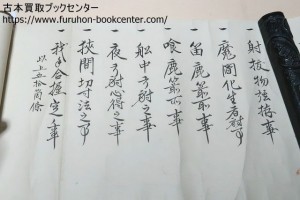 古本買取ブックセンター
https://www.furuhon-bookcenter.com/
一 射抜物法様事
一 魔閉化生者射事
一 笛鹿箭所事
一 喰鹿箭所事
一 舩中ヨリ射之事
一 夜ヨリ射心得之事
一 挟間切寸法之事
一 我手合極定之事
以上五拾箇條